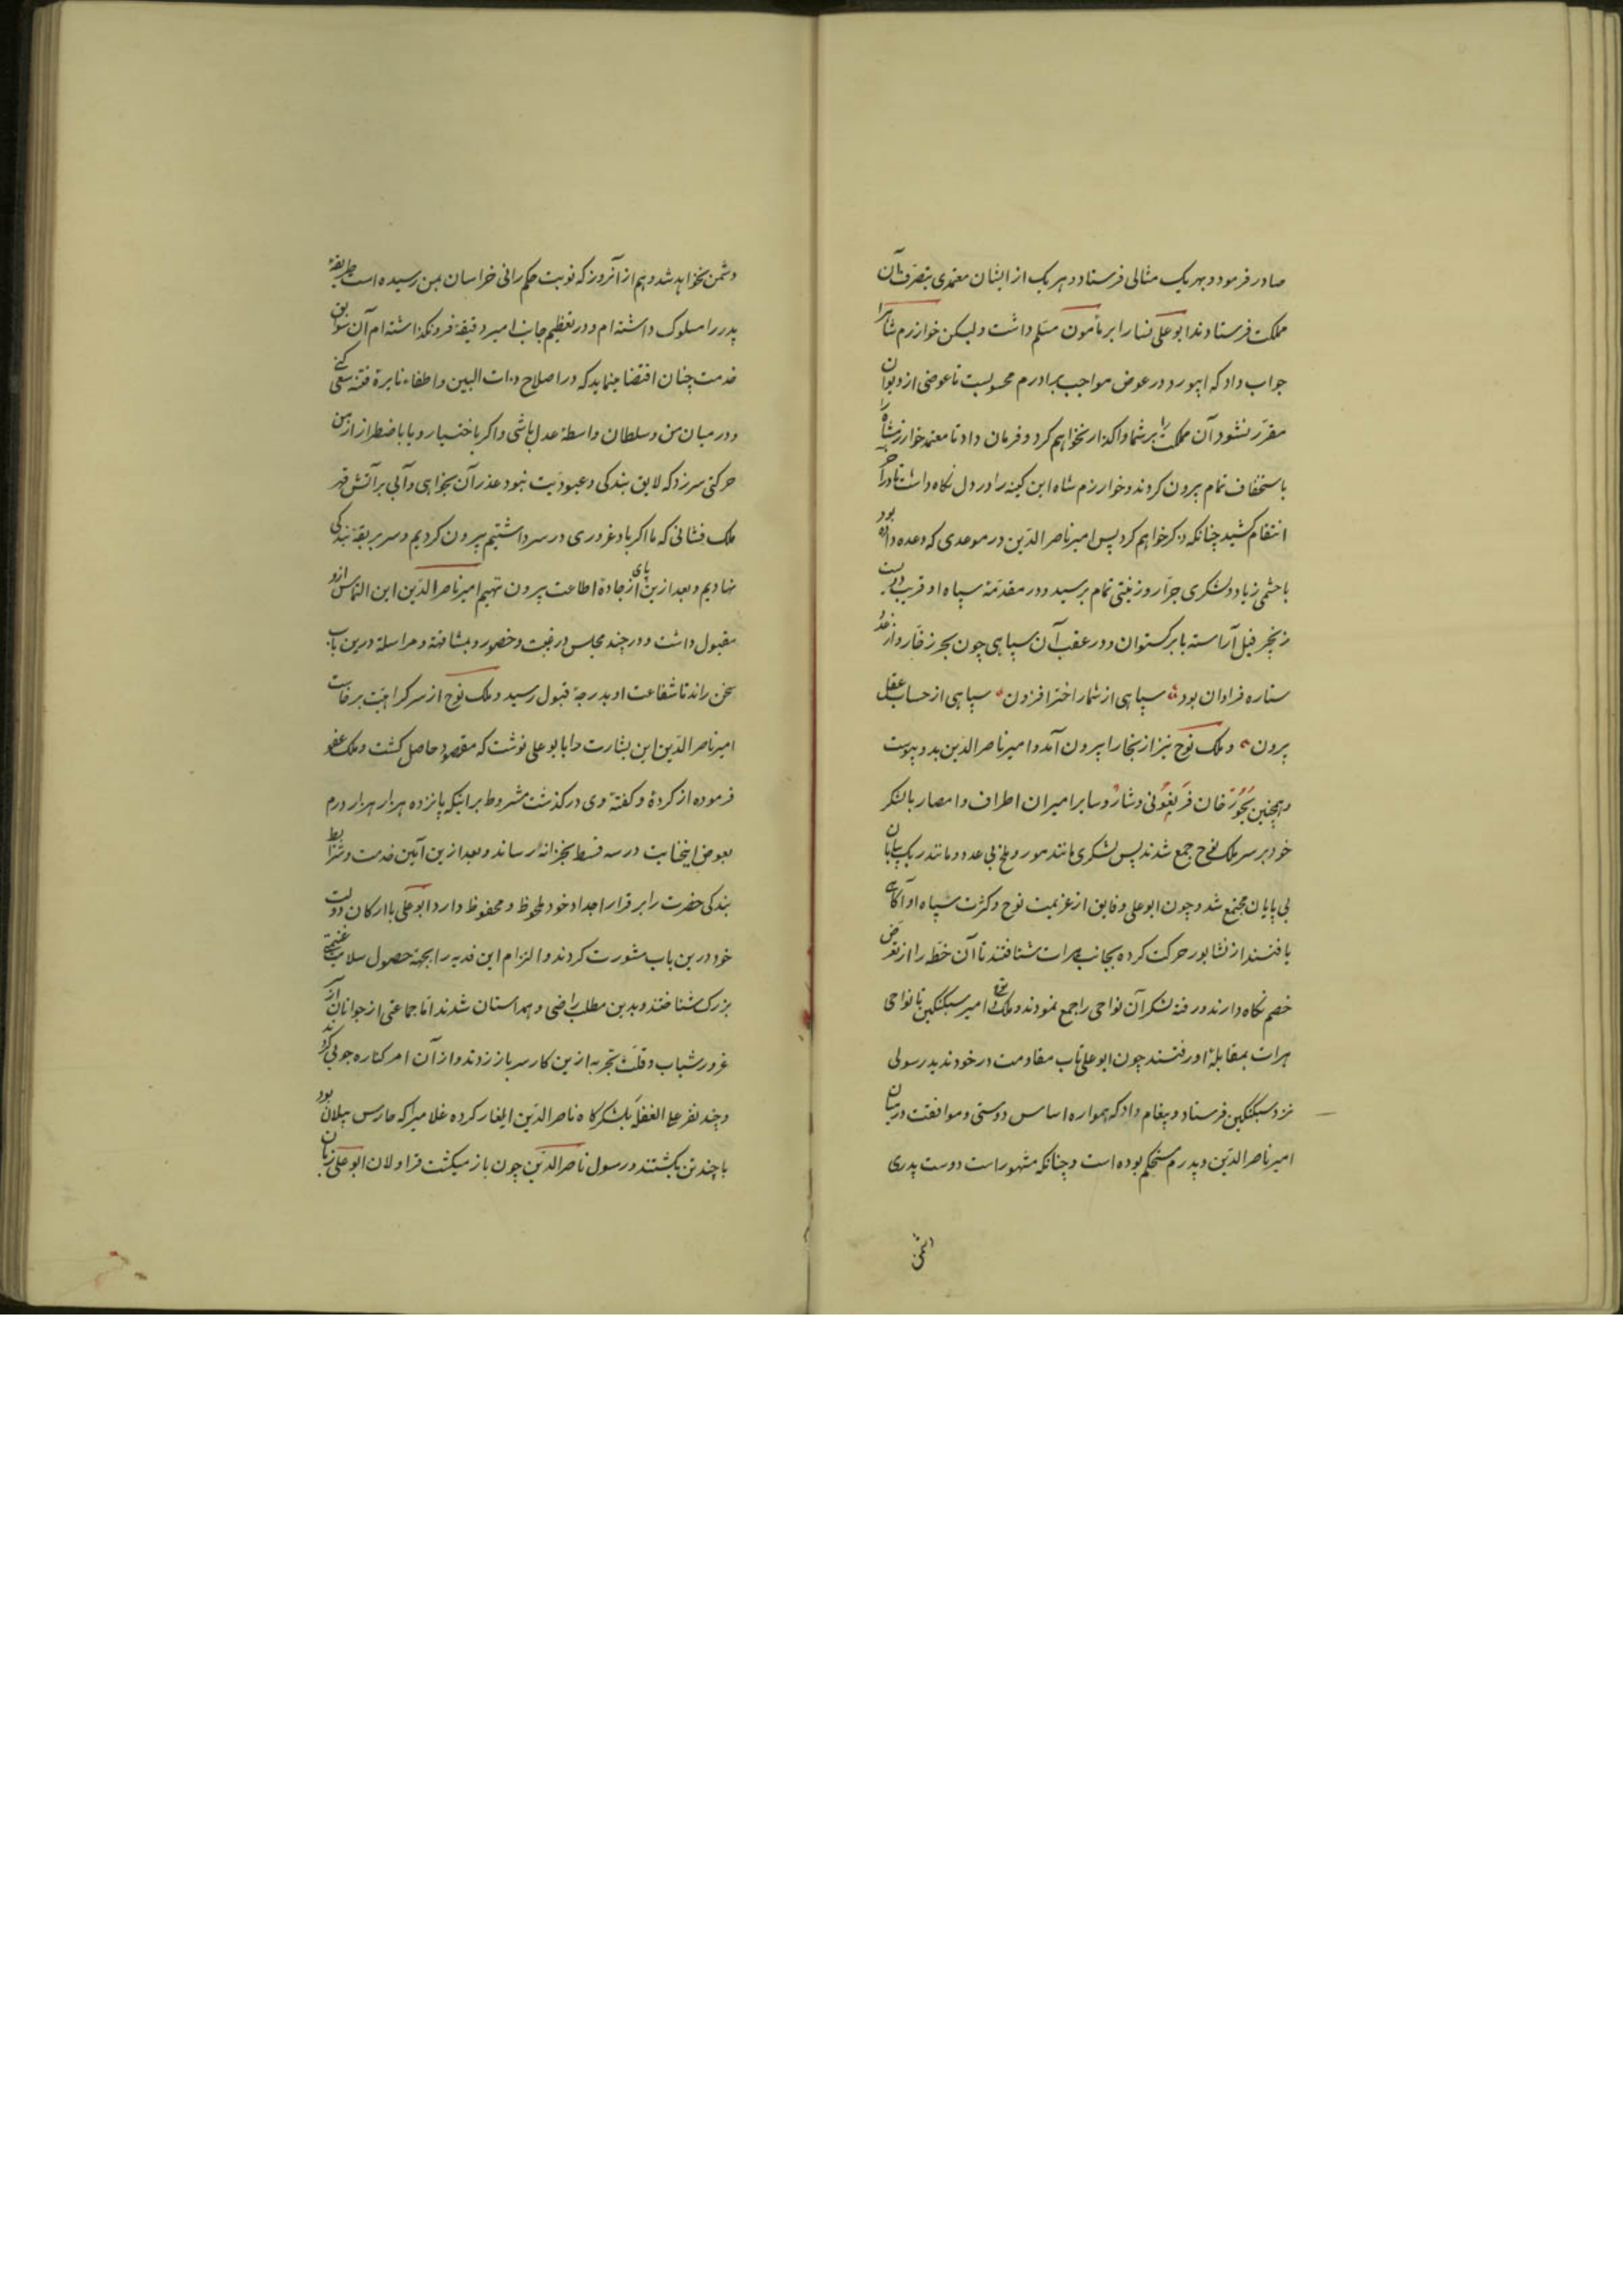 صادر فرمود و بهر یک مثالی فرستاد و هر یک از ایشان معتمدی بتصرف آن
مملکت فرستادند ابوعلی نسا را بر مأمون مسلم داشت ولیکن خوارزم شاه را
جواب داد که ابیورد در عوض مواجب برادرم محسوبست تا عوضی از دیوان
مقرر نشود آن مملکت را بر شما واگذار نخواهم کرد و فرمان داد تا معتمد خوارزمشاه را
باستخفاف تمام بیرون کردند و خوارزم شاه این کینه را در دل نگاه داشت تا در آخر
انتقام کشید چنانکه ذکر خواهم کرد پس امیر ناصر الدین در موعدی که وعده داده بود
با حشمی زیاد و لشکری جرار و زینتی تمام برسید و در مقدمه سپاه او قریب دویست
زنجیر فیل آراسته با برگستوان و در عقب آن سپاهی چون بحر زخار و از عدد
ستاره فراوان بود سپاهی از شمار اختر افزون سپاهی از حساب عقل
بیرون و ملک نوح نیز از بخارا بیرون آمد و امیر ناصر الدین بدو پیوست
و همچنین بجورخان فریغونی و شار و سایر امیران اطراف و امصار با لشکر
خود بر سر ملک نوح جمع شدند پس لشکری مانند مور و ملخ بی عدد و مانند ریک بیابان
بی پایان مجتمع شد و چون ابوعلی و فایق از عزیمت نوح و کثرت سپاه او آگاهی
یافتند از نشابور حرکت کرده بجانب هرات شتافتند تا آن خطه را از تعرض
خصم نگاه دارند و رفته لشکر آن نواحی را جمع نمودند و ملک نوح و امیر سبکتکین تا نواحی
هرات بمقابله او رفتند چون ابوعلی تاب مقاومت در خود ندید رسولی
نزد سبکتکین فرستاد و پیغام داد که همواره اساس دوستی و موافقت در میان
امیر ناصر الدین و پدرم مستحکم بوده است و چنانکه مشهور است دوست پدری
دشمن
دشمن نخواهد شد و هم از آنروز که نوبت حکم رانی خراسان بمن رسیده است طریقه
پدر را مسلوک داشته ام و در تعظیم جانب امیر دقیقه فرو نکذاشته ام آن سوابق
خدمت چنان اقتضا مینماید که در اصلاح ذات البین و اطفاء نایره فتنه سعی کنی
و در میان من و سلطان واسطه عدل باشی و اکر باختیار و یا باضطرار از من
حرکتی سر زد که لایق بندکی و عبودیت نبود عذر آن بخواهی و آبی بر آتش قهر
ملک فشانی که ما اکر باد غروری در سر داشتیم بیرون کردیم و سر بربقه بندکی
نهادیم و بعد ازین پای از جاده اطاعت بیرون ننهیم امیر ناصر الدین این التماس ازو
مقبول داشت و در چند مجلس در غیبت و حضور و بمشافهه و مراسله درین باب
سخن راند تا شفاعت او بدرجه قبول رسید و ملک نوح از سر کراهیت برخاست
امیر ناصر الدین این بشارت را با بوعلی نوشت که مقصود حاصل کشت و ملک عفو
فرموده از کرده و کفته وی در کذشت مشروط بر اینکه پانزده هزار هزار درم
بعوض اینجنایت در سه قسط بخزانه رساند و بعد ازین آیین خدمت و شرایط
بندکی حضرت را بر قرار اجداد خود ملحوظ و محفوظ دارد ابوعلی با ارکان دولت
خود درین باب مشورت کردند و التزام این فدیه را بجهة حصول سلامت غنیمتی
بزرک شناختند و بدین مطلب راضی و همداستان شدند اما جماعتی از جوانان از
غرور شباب و قلت تجربه ازین کار سر باز زدند و از آن امر کناره جویی کردند
و چند نفر علی الغفله بلشکرکاه ناصر الدین ایلغار کرده غلامیرا که حارس پیلان بود
با چند تن بکشتند و رسول ناصر الدین چون باز میکشت قراولان ابوعلی زبان